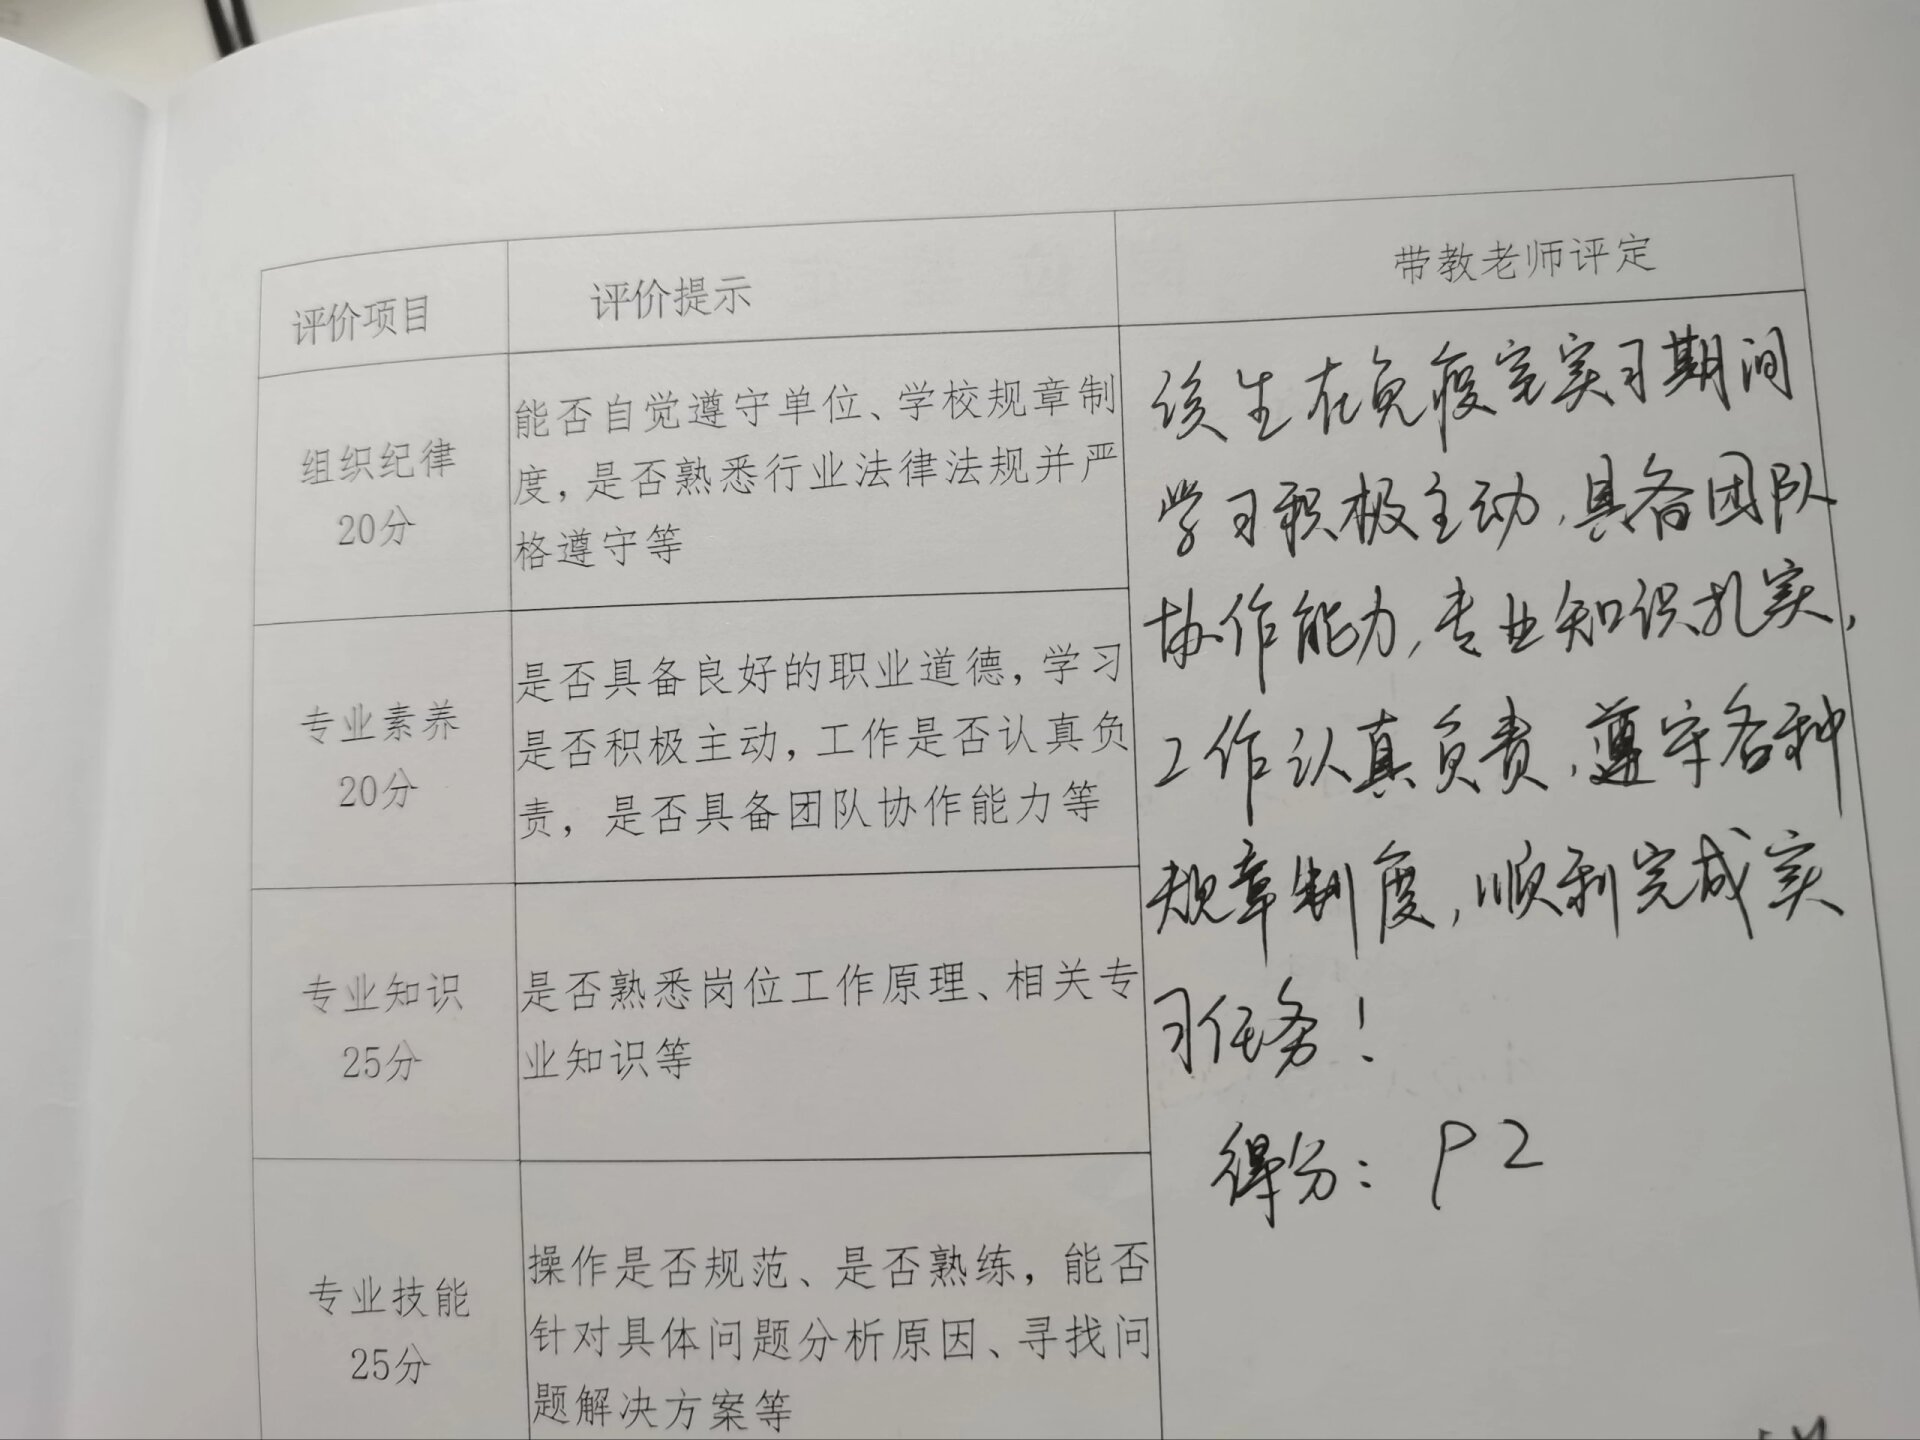 评价项目
评价提示
带教老师评定
组织纪律
20分
能否自觉遵守单位、学校规章制
度，是否熟悉行业法律法规并严
格遵守等
专业素养
20分
是否具备良好的职业道德，学习
是否积极主动，工作是否认真负
责，是否具备团队协作能力等
专业知识
25分
是否熟悉岗位工作原理、相关专
业知识等
专业技能
25分
操作是否规范、是否熟练，能否
针对具体问题分析原因、寻找问
题解决方案等
该生在免疫室实习期间
学习积极主动，具备团队
协作能力，专业知识扎实，
工作认真负责，遵守各种
规章制度，顺利完成实
习任务！
得分：92